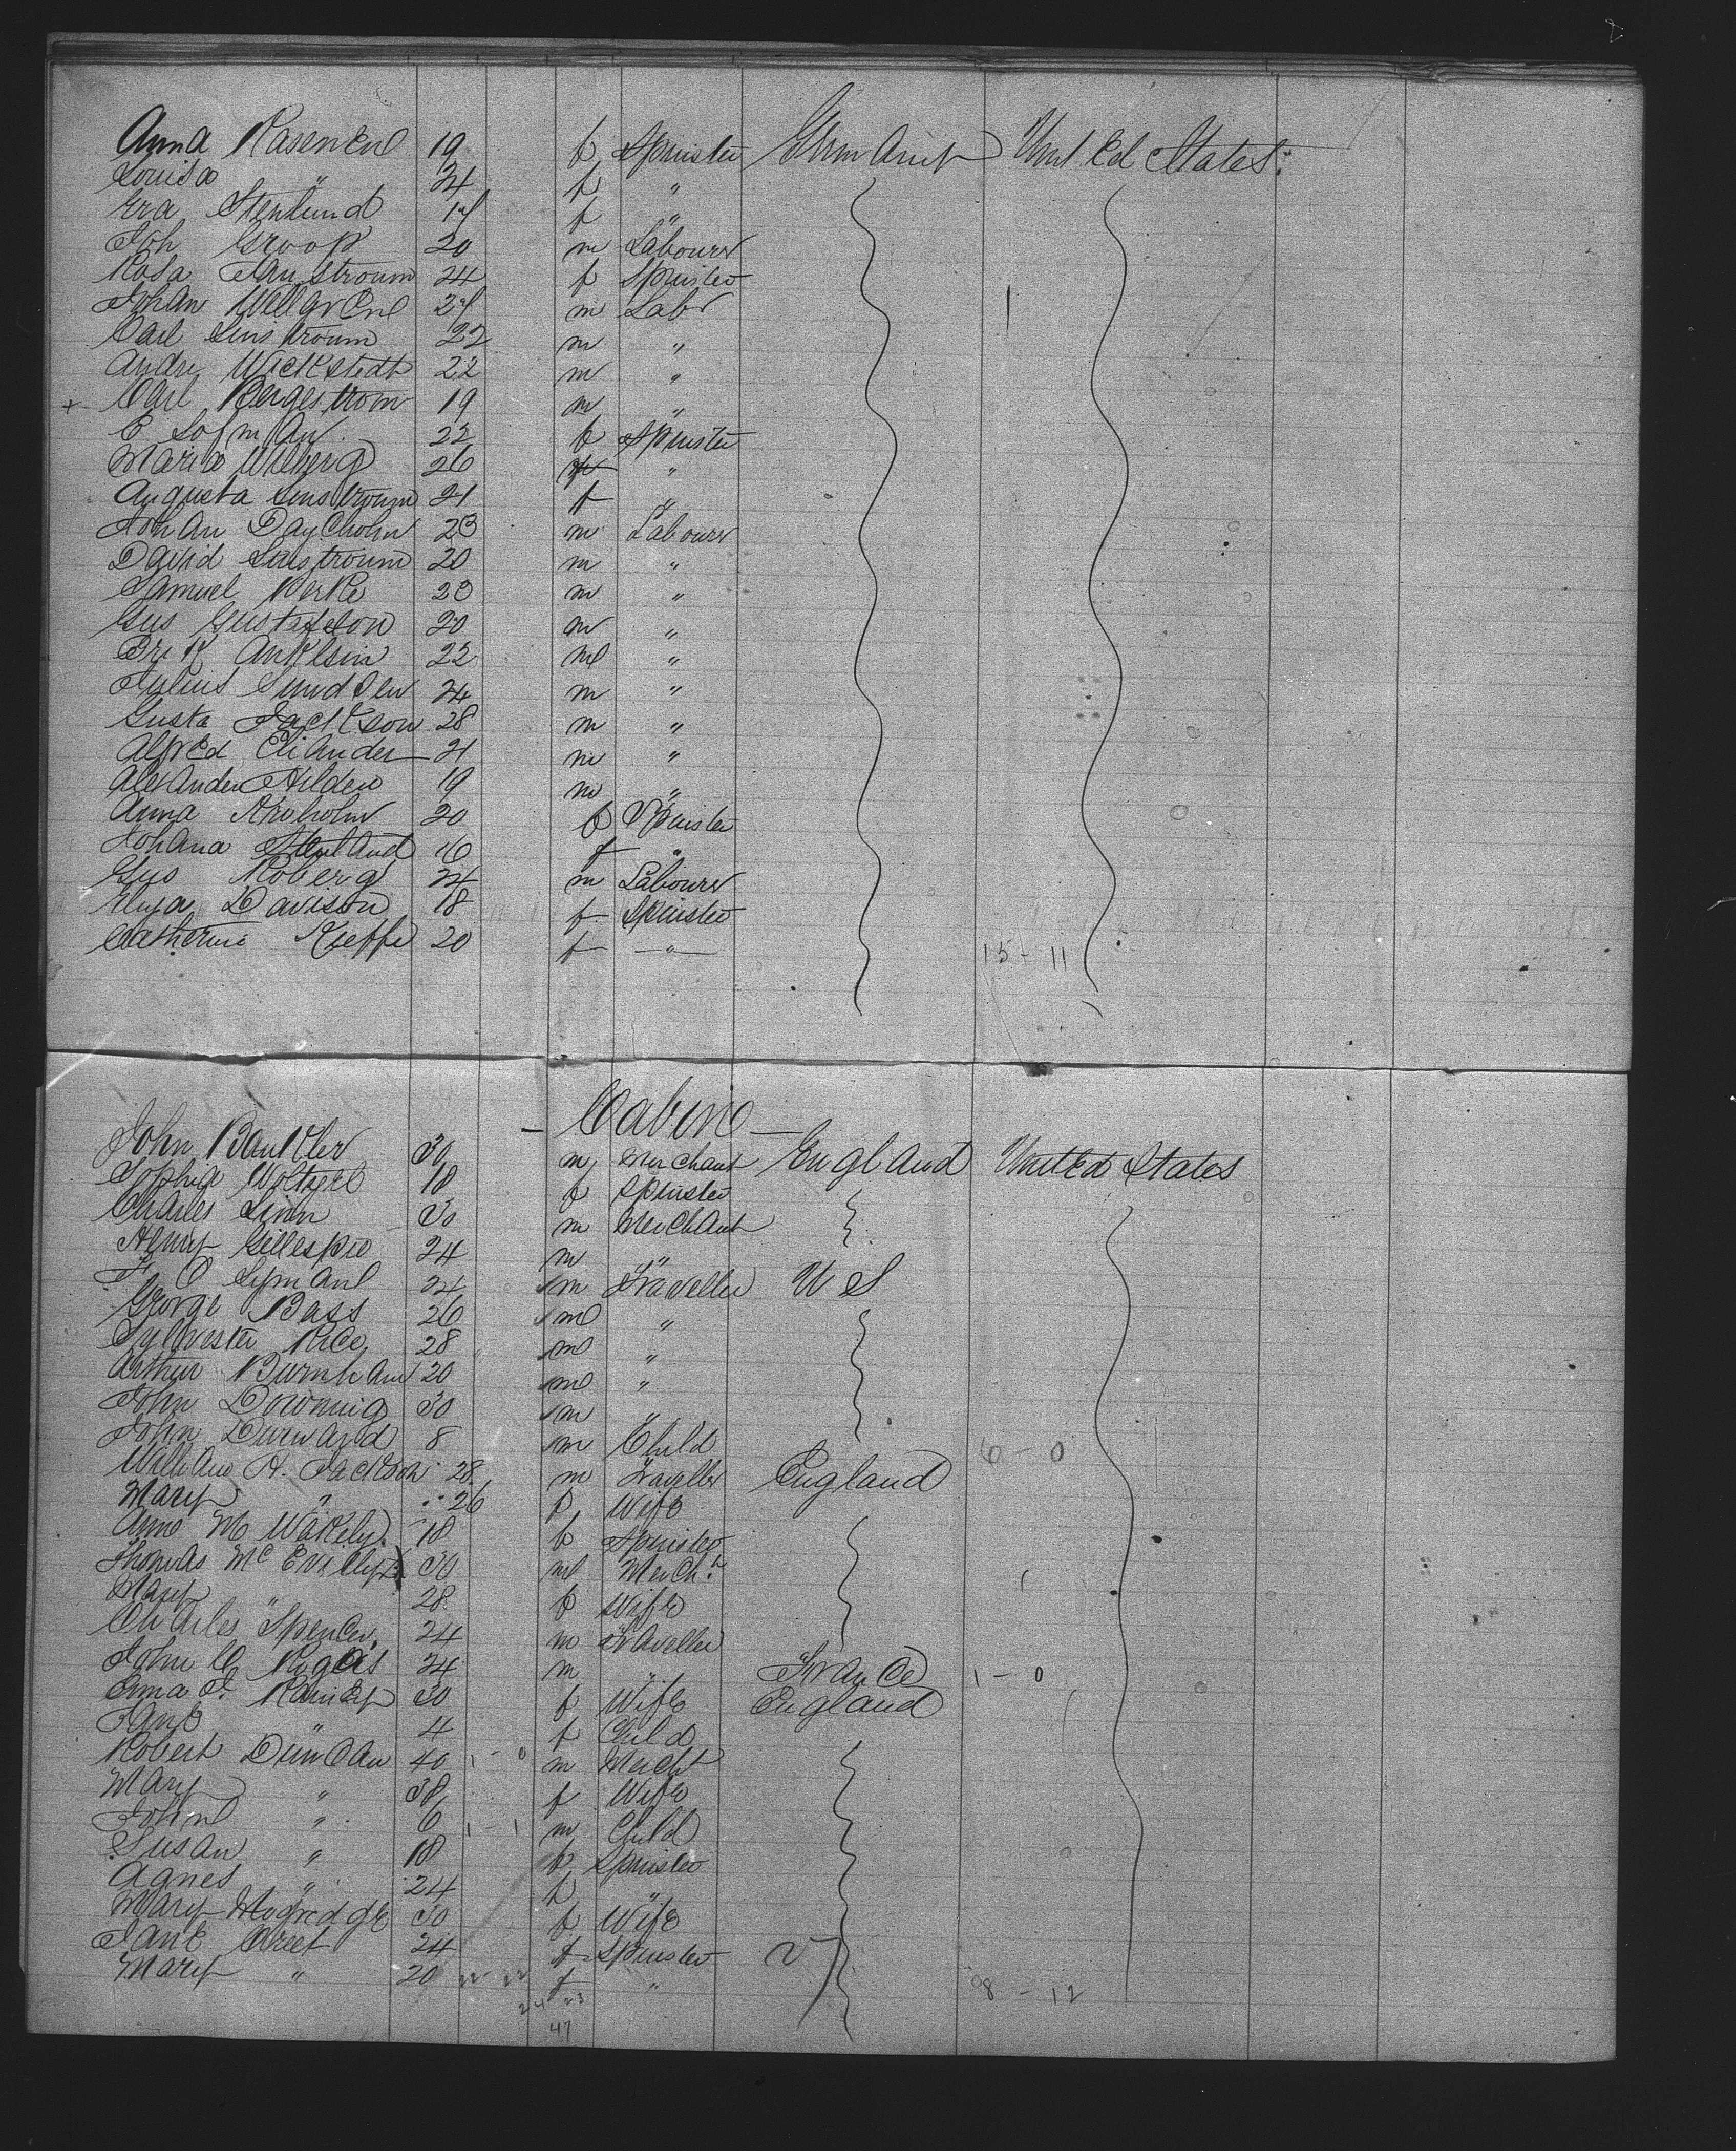 Anna Rasenend 19 f Spinster Germany United States.
Louisa " 24 f "
Era Stenlund 17 f "
Joh Groop 20 m Labourer
Rosa Tanstroum 24 f Spinster
Johan Wellgrend 27 m Labr
Carl Linstroum 22 m "
Andre Wickstedt 22 m "
+ Carl Bergestrom 19 m "
E Lofman 22 f Spinster
Maria Wiberg 26 f "
Augusta Linstroum 21 f "
Johan Daycholm 23 m Labourer
David Linstroum 20 m "
Samuel Berke 23 m "
Gus Gustafson 20 m "
Erik Anklsin 22 m "
Julius Sundden 24 m "
Gusta Jackson 28 m "
Alfred Eliander 21 m "
Alexander Hilden 19 m "
Anna 20 f Spinster
Johana Stenland 16 f "
Gus Roberg 24 m Labourer
Davison 18 f Spinster
Catherine Kieffe 20 f — " —
15 - 11
— Cabin —
John Bankler 30 m Merchant England United States
Sophia 18 f Spinster
Charles Linn 30 m Merchant
Henry Gillespie 24 m "
F O Lyman 24 m Traveller U S
George Bass 26 m "
Sylvester Rice 28 m "
Arthur Burnham 20 m "
John Downing 30 m "
John Durward 8 m Child 6 - 0
William H. Jackson 28 m Traveller England
Mary " 26 f Wife
Anne M Wakely 18 f Spinster
Thomas Mc Evilly 30 m Mercht
Mary " 28 f Wife
Charles Spencer 24 m Traveller
John C 24 m " France 1 - 0
Emma J. Ramsey 30 f Wife England
Jane " 4 f Child
Robert Duncan 40 1 - 0 m Mercht
Mary " 38 f Wife
John " 6 1 - 1 m Child
Susan " 18 f Spinster
Agnes " 24 f "
Mary 30 f Wife
Jane Street 24 f Spinster
Mary " 20 22 - 22 f " 8 - 12
24 23
47